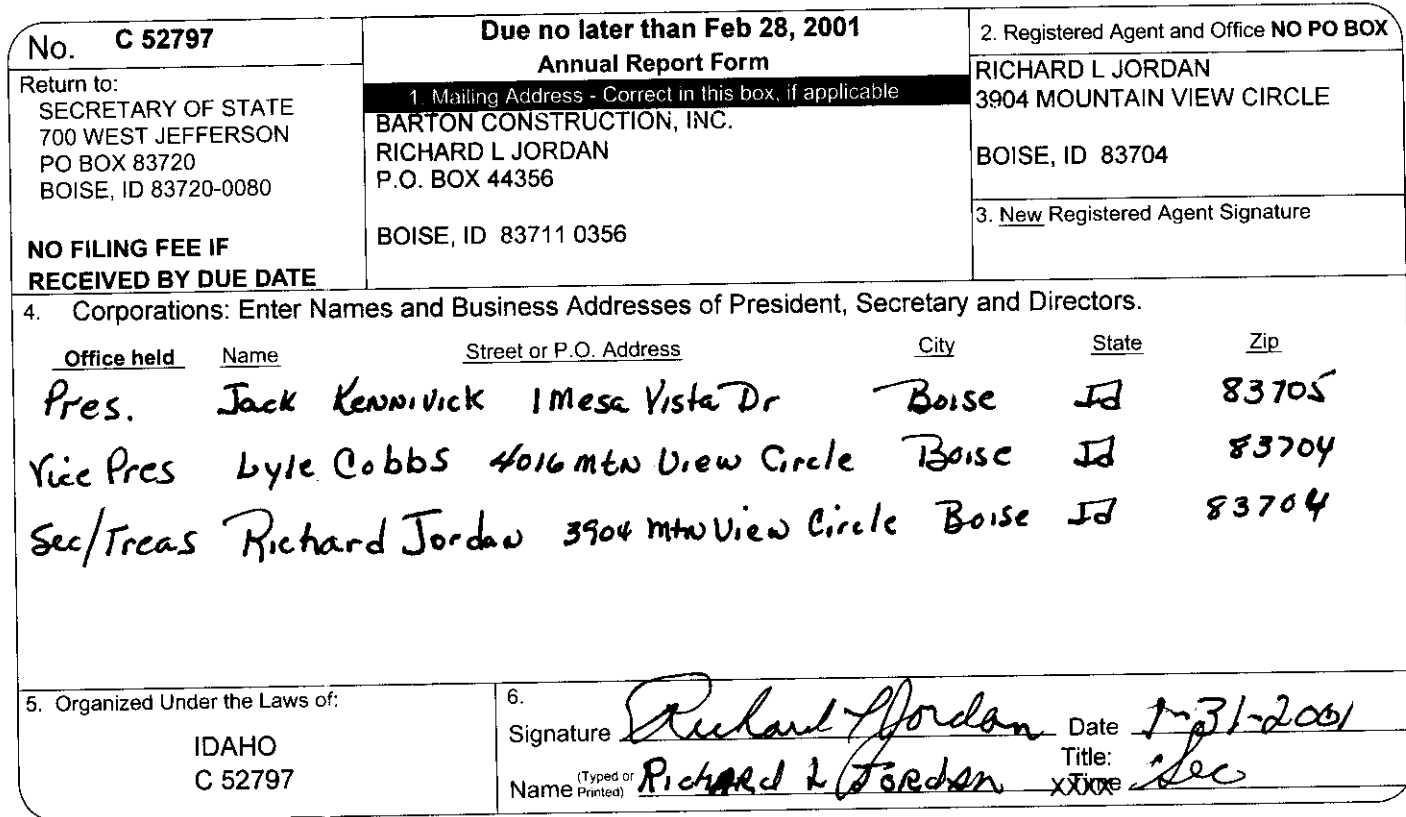 No. C 52797
Return to:
SECRETARY OF STATE
700 WEST JEFFERSON
PO BOX 83720
BOISE, ID 83720-0080
NO FILING FEE IF
RECEIVED BY DUE DATE
Due no later than Feb 28, 2001
Annual Report Form
1. Mailing Address - Correct in this box, if applicable
BARTON CONSTRUCTION, INC.
RICHARD L JORDAN
P.O. BOX 44356
BOISE, ID 83711 0356
2. Registered Agent and Office NO PO BOX
RICHARD L JORDAN
3904 MOUNTAIN VIEW CIRCLE
BOISE, ID 83704
3. New Registered Agent Signature
4. Corporations: Enter Names and Business Addresses of President, Secretary and Directors.
Office held Name Street or P.O. Address City State Zip
Pres. Jack Kennivick 1 Mesa Vista Dr Boise Id 83705
Vice Pres Lyle Cobbs 4016 Mtn View Circle Boise Id 83704
Sec/Treas Richard Jordan 3904 Mtn View Circle Boise Id 83704
5. Organized Under the Laws of:
IDAHO
C 52797
6.
Signature Richard L Jordan Date 1-31-2001
Name (Typed or Printed) Richard L Jordan Title: Sec